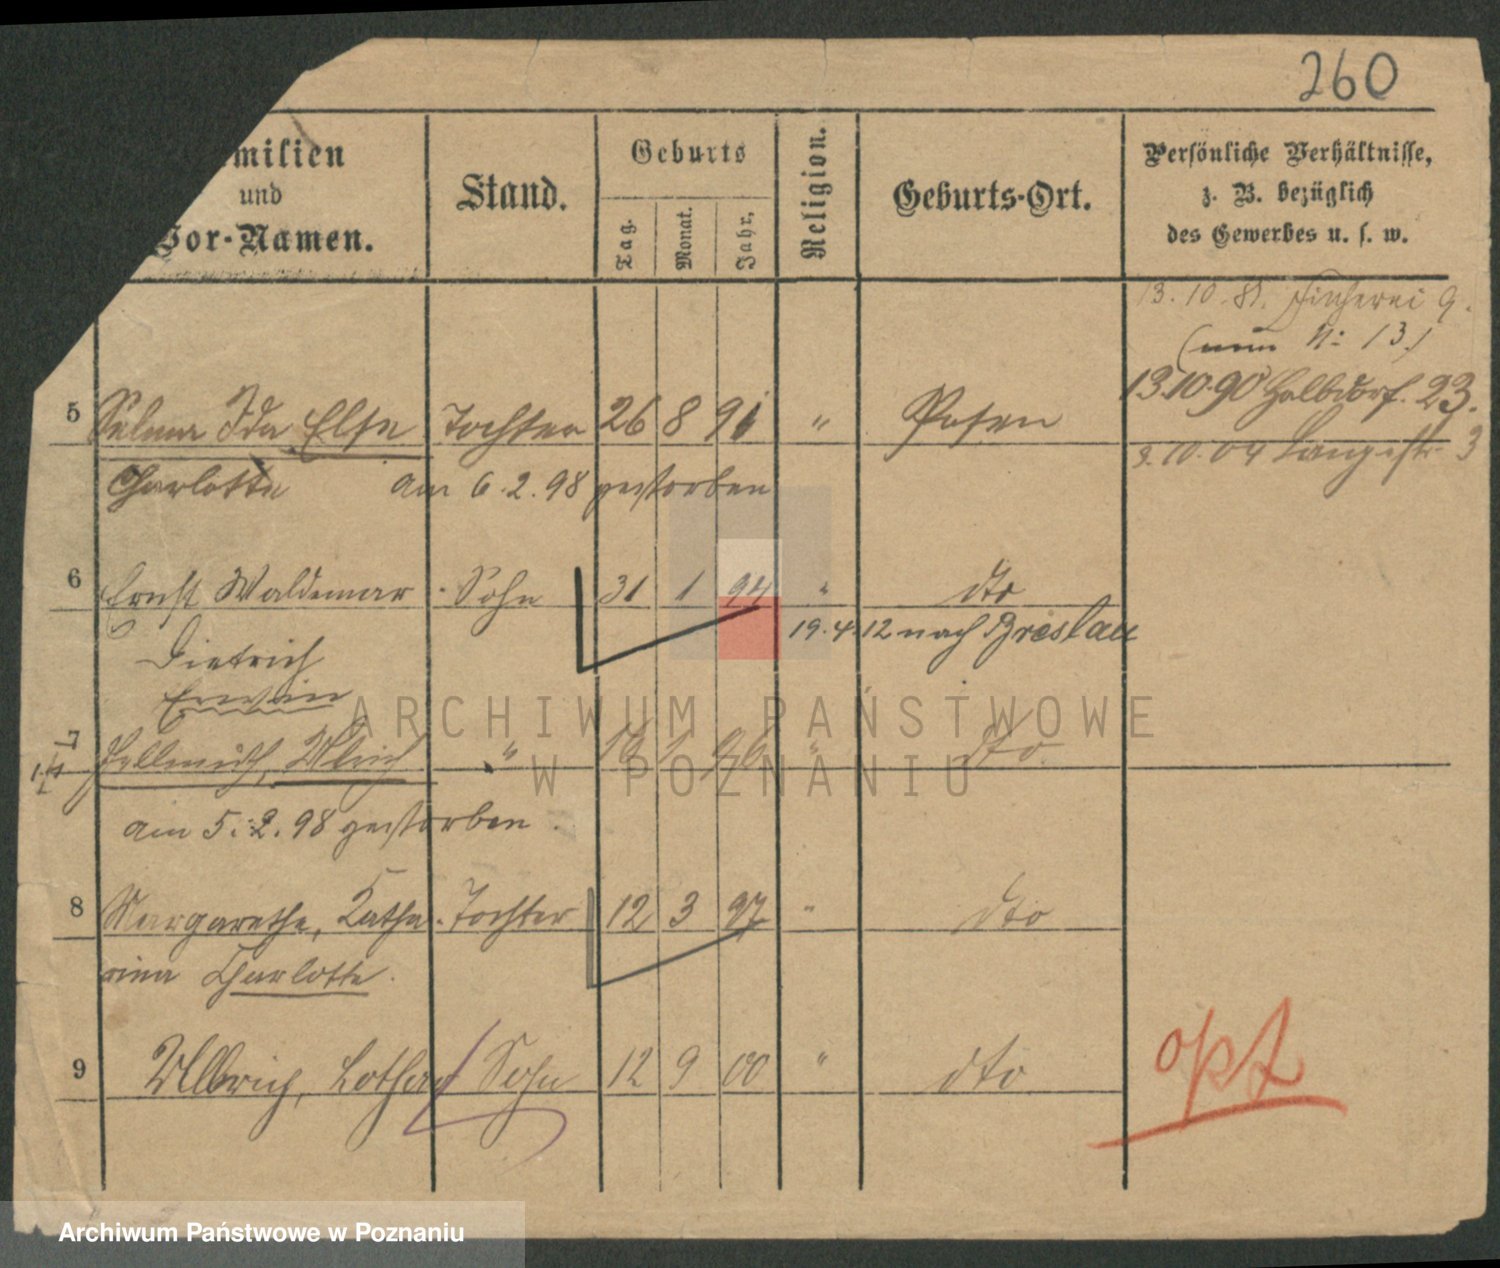 260
milien
und
Vor-Namen.
Stand.
Geburts
Tag.
Monat.
Jahr.
Religion.
Geburts-Ort.
Persönliche Verhältnisse,
z. B. bezüglich
des Gewerbes u. s. w.
13. 10. 81. 9.
(nun N: 13)
13.10.90 Halbdorf. 23.
5 Selma Ida Else Tochter 26 8 91 " Posen
3. 10. 04 Langestr. 3
Charlotte am 6. 2. 98 gestorben
6 Ernst Waldemar Sohn 31 1 94 " dto
19. 4. 12 nach Breslau
Dietrich
Erwin
7 Hellmuth, Ulrich " 16 1 96 " dto.
am 5. 2. 98 gestorben.
8 Margarethe, Katha- Tochter 12 3 97 " dto
rina Charlotte.
9 Ullrich, Lothar Sohn 12 9 00 " dto
opt
ARCHIWUM PAŃSTWOWE
W POZNANIU
Archiwum Państwowe w Poznaniu